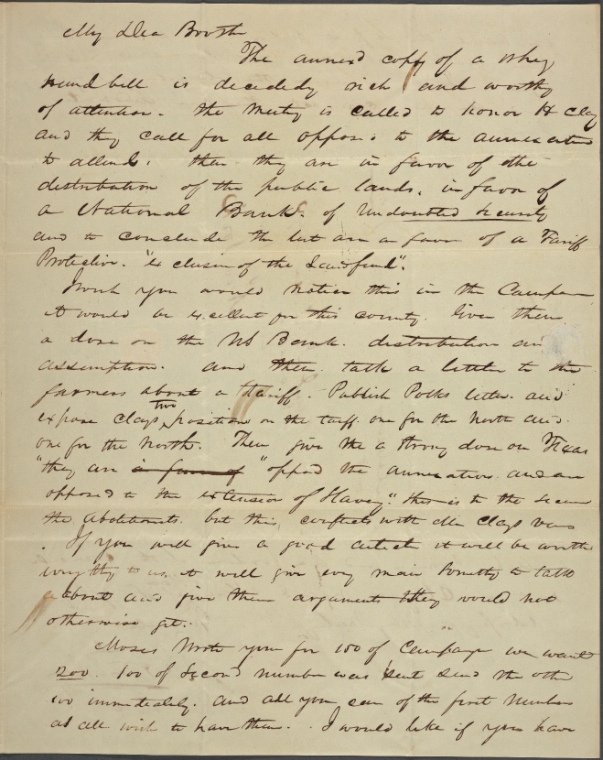 My Dea Booth
The annexd copy of a Whig
Handbill is decidedly rich and worthy
of attention. The Meeting is called to honor H Clay
and they call for all opposed to the annexation
to attend. then they are in favor of the
distribution of the public lands. in favor of
a National Bank. of Undoubted Security
and to conclude the list are in favor of a Tariff
Protective. "exclusive of the Landfund".
I wish you would notice this in the Campaign
it would be excellent for this county. Given them
a dose on the US Bank. distribution and
assumption. and then talk a little to the
farmers about a Tariff. Publish Polks letter and
expose Clays two positions on the tariff. one for the North and
one for the North. Then give the a strong dose on Texas
"they are in favor of "opposed the annexation and are
opposed to the extension of Slavery." this is to the
the Abolitionists. but this, conflicts with Mr Clays views
. If you will give a good article it will be worth
every thing to us. it will give every man something to talk
about and give them arguments they would not
otherwise get.
Moses wrote you for 100 of Campaign we want
200. 100 of Second number was sent send the other
100 immediately. and all you can of the first Number
as all wish to have them. I would like if you have